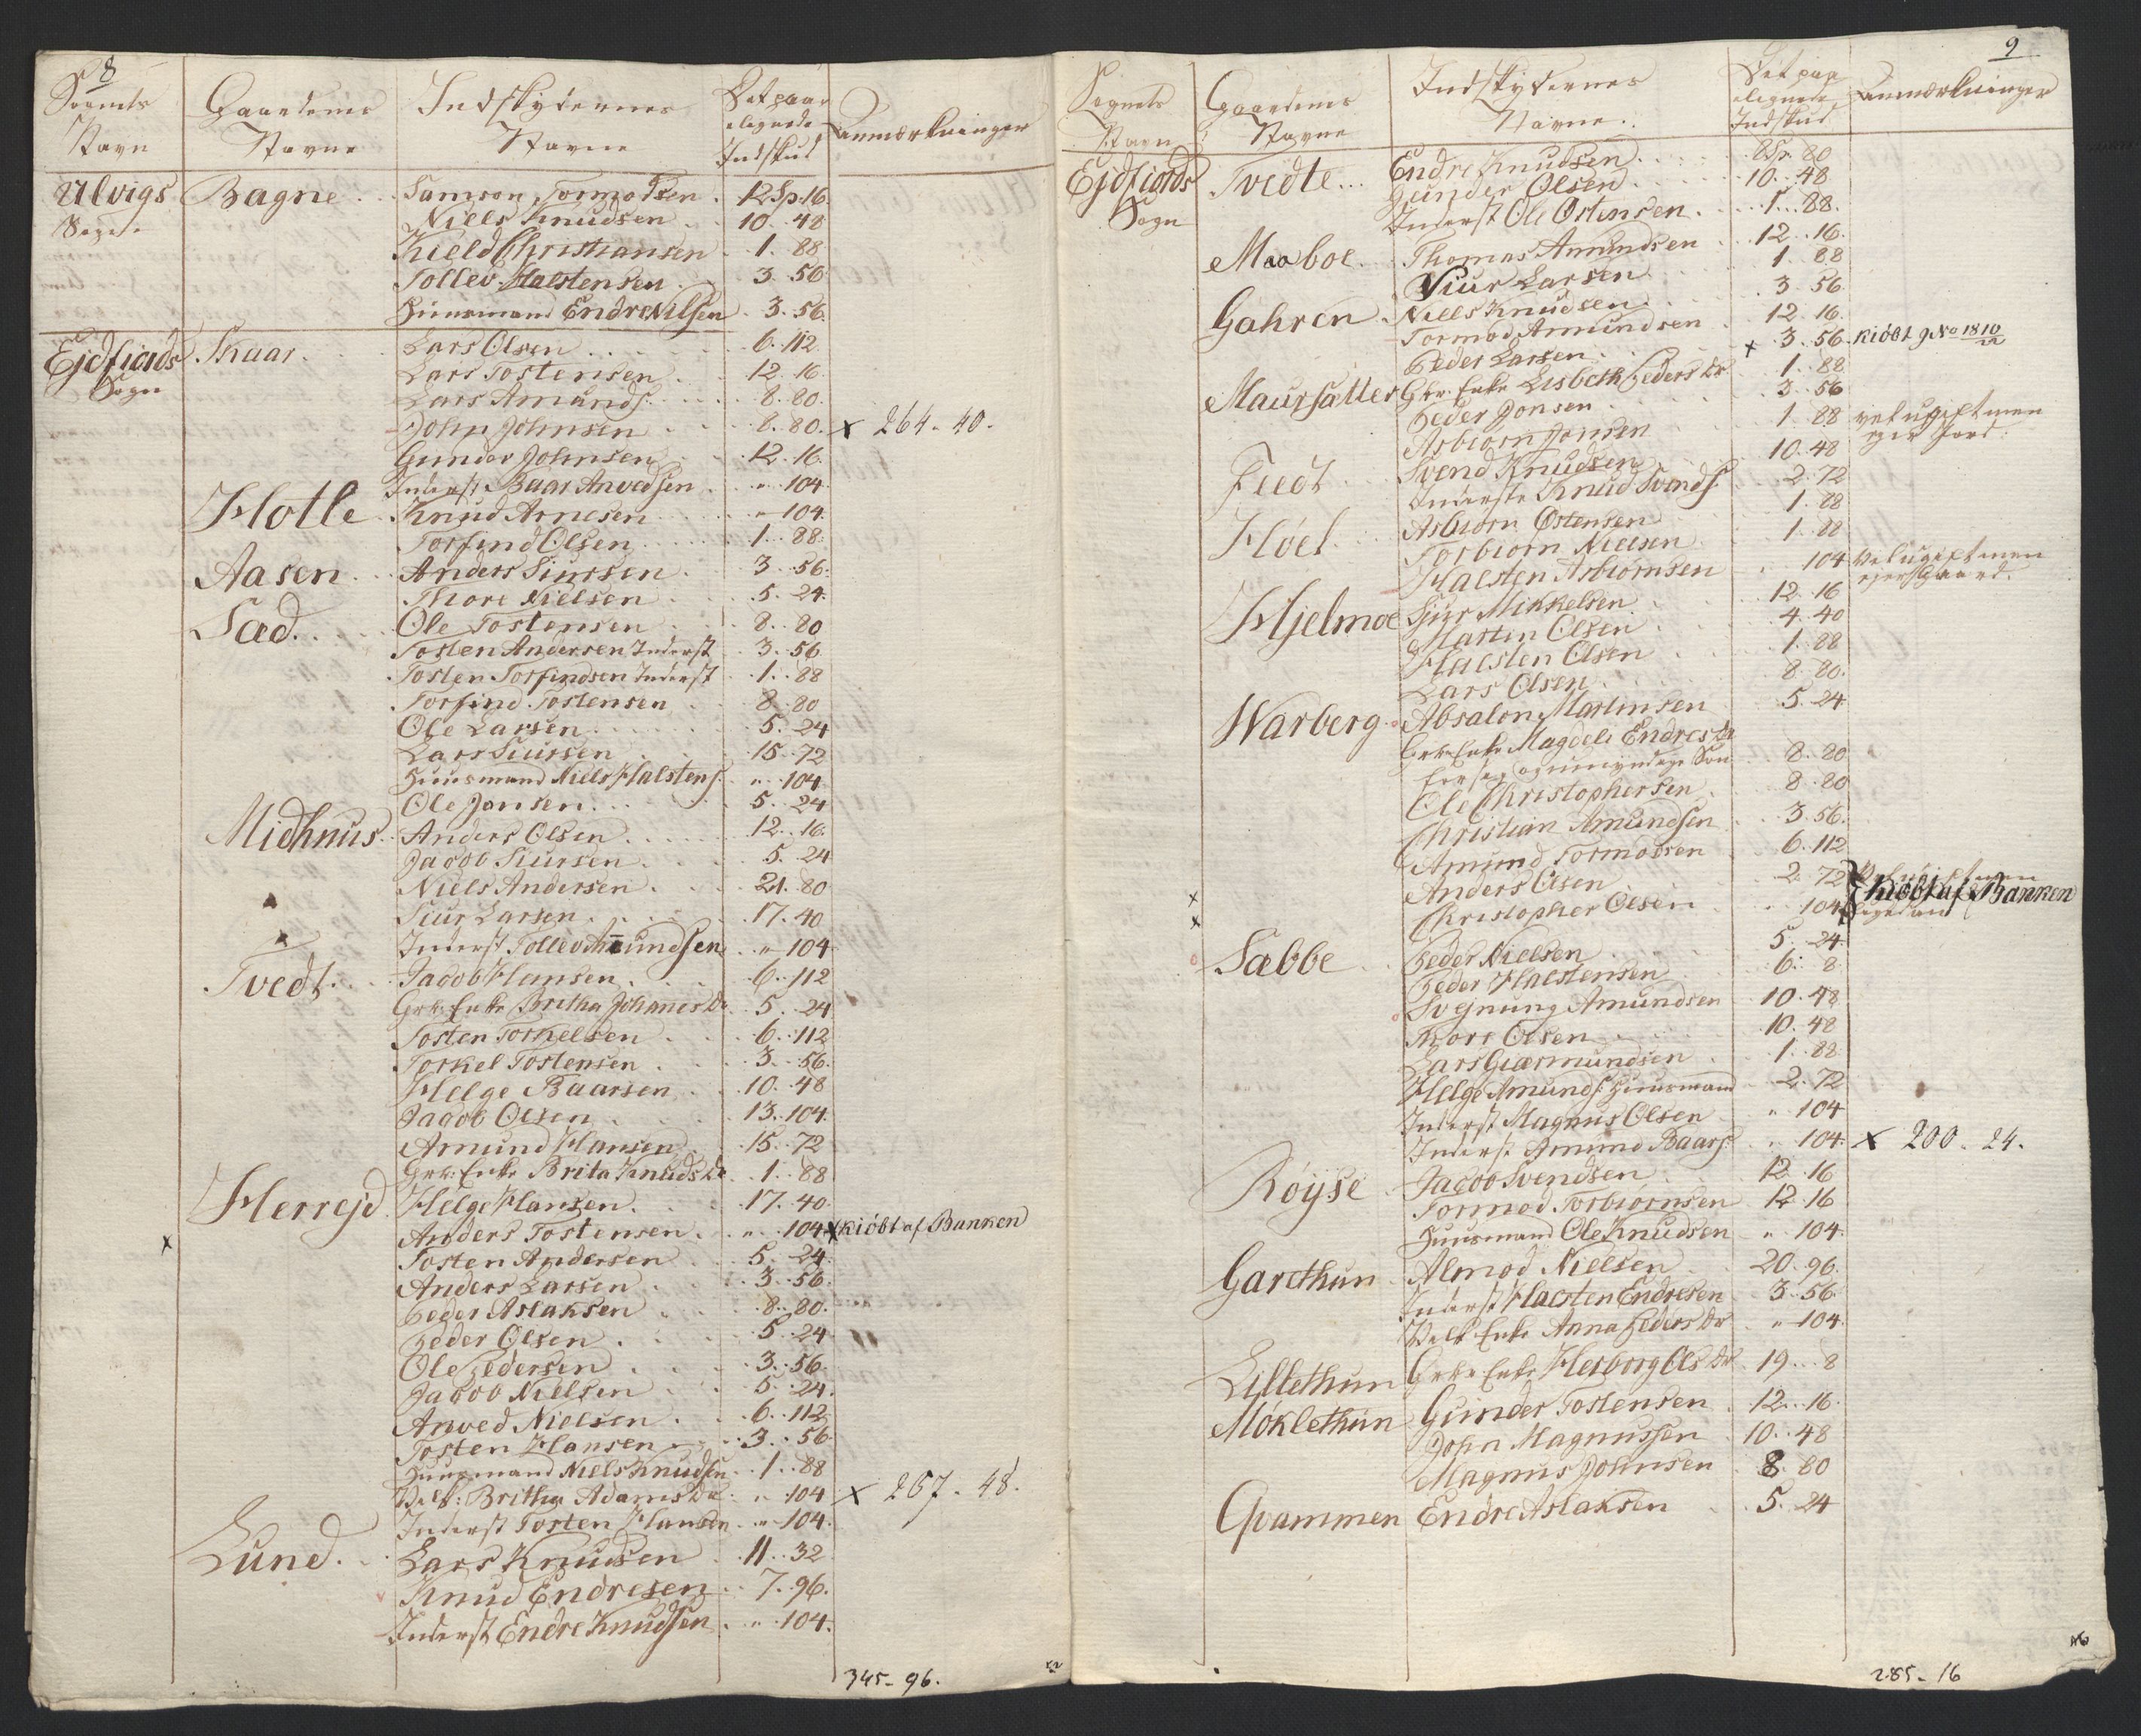 8
Sognets Navn
Gaardenes Navne
Indskydernes Navne
Det paalignede Indskud
Anmærkninger
Ulvigs Sogn
Bagne Samson Tormodsen 12 Sp. 16.
Niels Knudsen 10. 48
Kield Christiansen 1. 88
Tollev Halstensen 3. 56
Huusmand Endre Nilsen 3. 56.
Ejdfiords Sogn
Skaar Lars Olsen 6. 112
Lars Tostensen 12. 16
Lars Amunds: 8. 80.
John Johnsen 8. 80. x 264 - 40.
Gunder Johnsen 12. 16.
Inderst Baar Anvedsen " 104
Hotle Knud Arnesen " 104.
Torfind Olsen 1. 88.
Aasen Anders Siursen 3. 56.
Thore Nielsen 5. 24.
Sæd Ole Tostensen 8. 80
Tosten Andersen Inderst 3. 56
Tosten Torfindsen Inderst 1. 88
Torfind Tostensen 8. 80
Ole Larsen 5. 24
Lars Siursen 15. 72
Huusmand Niels Halstens: " 104
Ole Jonsen 5. 24
Midhnus Anders Olsen 12. 16.
Jacob Siursen 5. 24
Niels Andersen 21. 80
Siur Larsen 17. 40
Inderst Tollev Amundsen " 104
Tvedt Jacob Hansen 6. 112
Grk: Enke Britha Johanes Dr 5. 24
Tosten Torkelsen 6. 112
Torkel Tostensen 3. 56.
Helge Baarsen 10. 48
Jacob Olsen 13. 104.
Amund Hansen 15. 72
Grk: Enke Brita Knuds Dr 1. 88
Herrejd Helge Hansen 17. 40.
x Anders Tostensen " 104 x kiöbt af Banken
Tosten Andersen 5. 24.
Anders Larsen 3. 56.
Peder Aslaksen 8. 80.
Peder Olsen 5. 24
Ole Pedersen 3. 56.
Jacob Nielsen 5. 24.
Anved Nielsen 6. 112
Tosten Hansen 3. 56
Huusmand Niels Knudsen 1. 88
Britha Adams Dr " 104 x 267 - 48.
Inderst Tosten Hansen " 104.
Lund Lars Knudsen 11. 32
Knud Endresen 7. 96.
Inderst Endre Knudsen " 104.
345 - 96.
9
Sognets Navn
Gaardenes Navne
Indskydernes Navne
Det paalignede Indskud
Anmærkninger
Ejdfiords Sogn
Tvedte Endre Knudsen 8 Sp. 80
Gunder Olsen 10. 48
Inderst Ole Ostensen 1. 88.
Maaboe Thomas Amundsen 12. 16.
Siur Larsen 1. 88
Gahren Niels Knudsen 3. 56
Tormod Amundsen 12. 16.
Peder Larsen x 3. 56. kiöbt 1810
Maursætter Grk: Enke Lisbeth Peders Dr 1. 88
Peder Jonsen 3. 56
Asbiorn Jonsen 1. 88 vel ugift men
ejer Jord.
Fiedt Svend Knudsen 10. 48
Inderste Knud Svends: 2. 72
Höel Asbiorn Ostensen 1. 88
Torbiorn Nielsen 1. 88
Halsten Asbiornsen 104 Vel ugift men
ejer Gaard.
Hjelmoe Sjur Mikkelsen 12. 16
Martin Olsen 4. 40
Halsten Olsen 1. 88
Lars Olsen 8. 80.
Warberg Absalon Martinsen 5. 24
Grk: Enke Magdele Endres Dr
for sig og umyndige Søn 8. 80
Ole Christophersen 8. 80
Christian Amundsen 3. 56.
Amund Tormodsen 6. 112
x Anders Olsen 2. 72
x Christopher Olsen " 104 kiöbt af Banken
Sæbbe Peder Nielsen 5. 24.
Peder Halstensen 6. 8
Svejnung Amundsen 10. 48
Thore Olsen 10. 48
Lars Giærmundsen 1. 88
Helge Amunds: Huusmand 2. 72
Inderst Magnus Olsen " 104
Inderst Amund Baars: " 104. x 200 - 24.
Röyse Jacob Svendsen 12. 16
Tormod Torbiornsen 12. 16
Huusmand Ole Knudsen " 104.
Garethun Almod Nielsen 20. 96.
Inderst Halsten Endresen 3. 56
Enke Anna Peders Dr " 104.
Lillethun Grk: Enke Herborg Ols Dr 19. 8
Möklethun Gunder Tostensen 12. 16.
John Magnussen 10. 48
Magnus Johnsen 8. 80
Qvammen Endre Aslaksen 5. 24
285 - 16